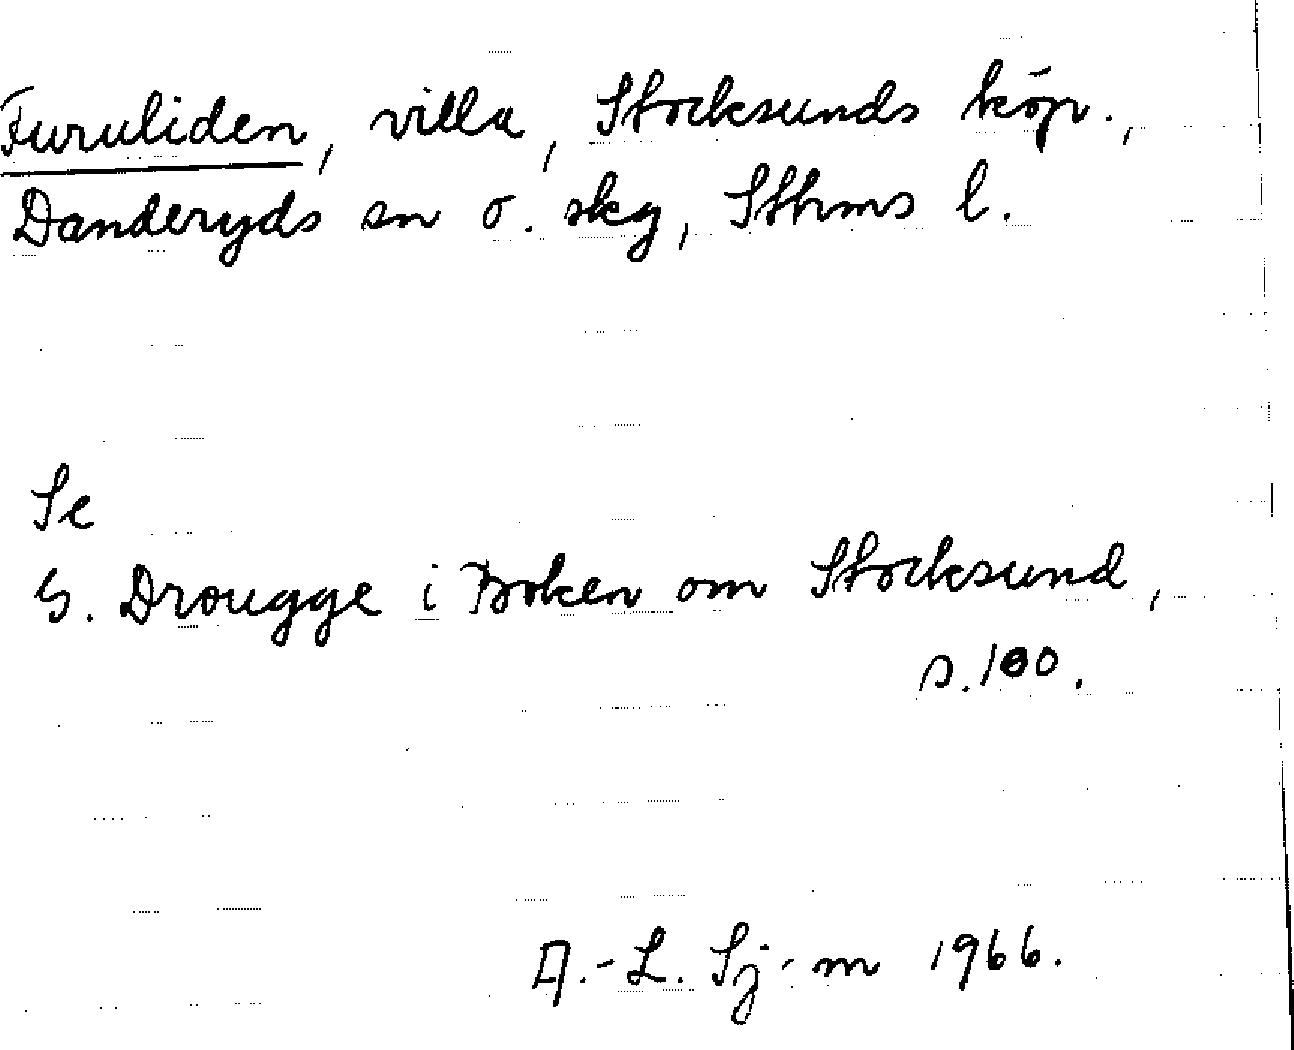 Furuliden, villa, Stocksunds köp.,
Danderyds sn o. skg, Sthms l.
Se
G. Drougge i Boken om Stocksund,
s. 100.
A.-L. Sj-m 1966.